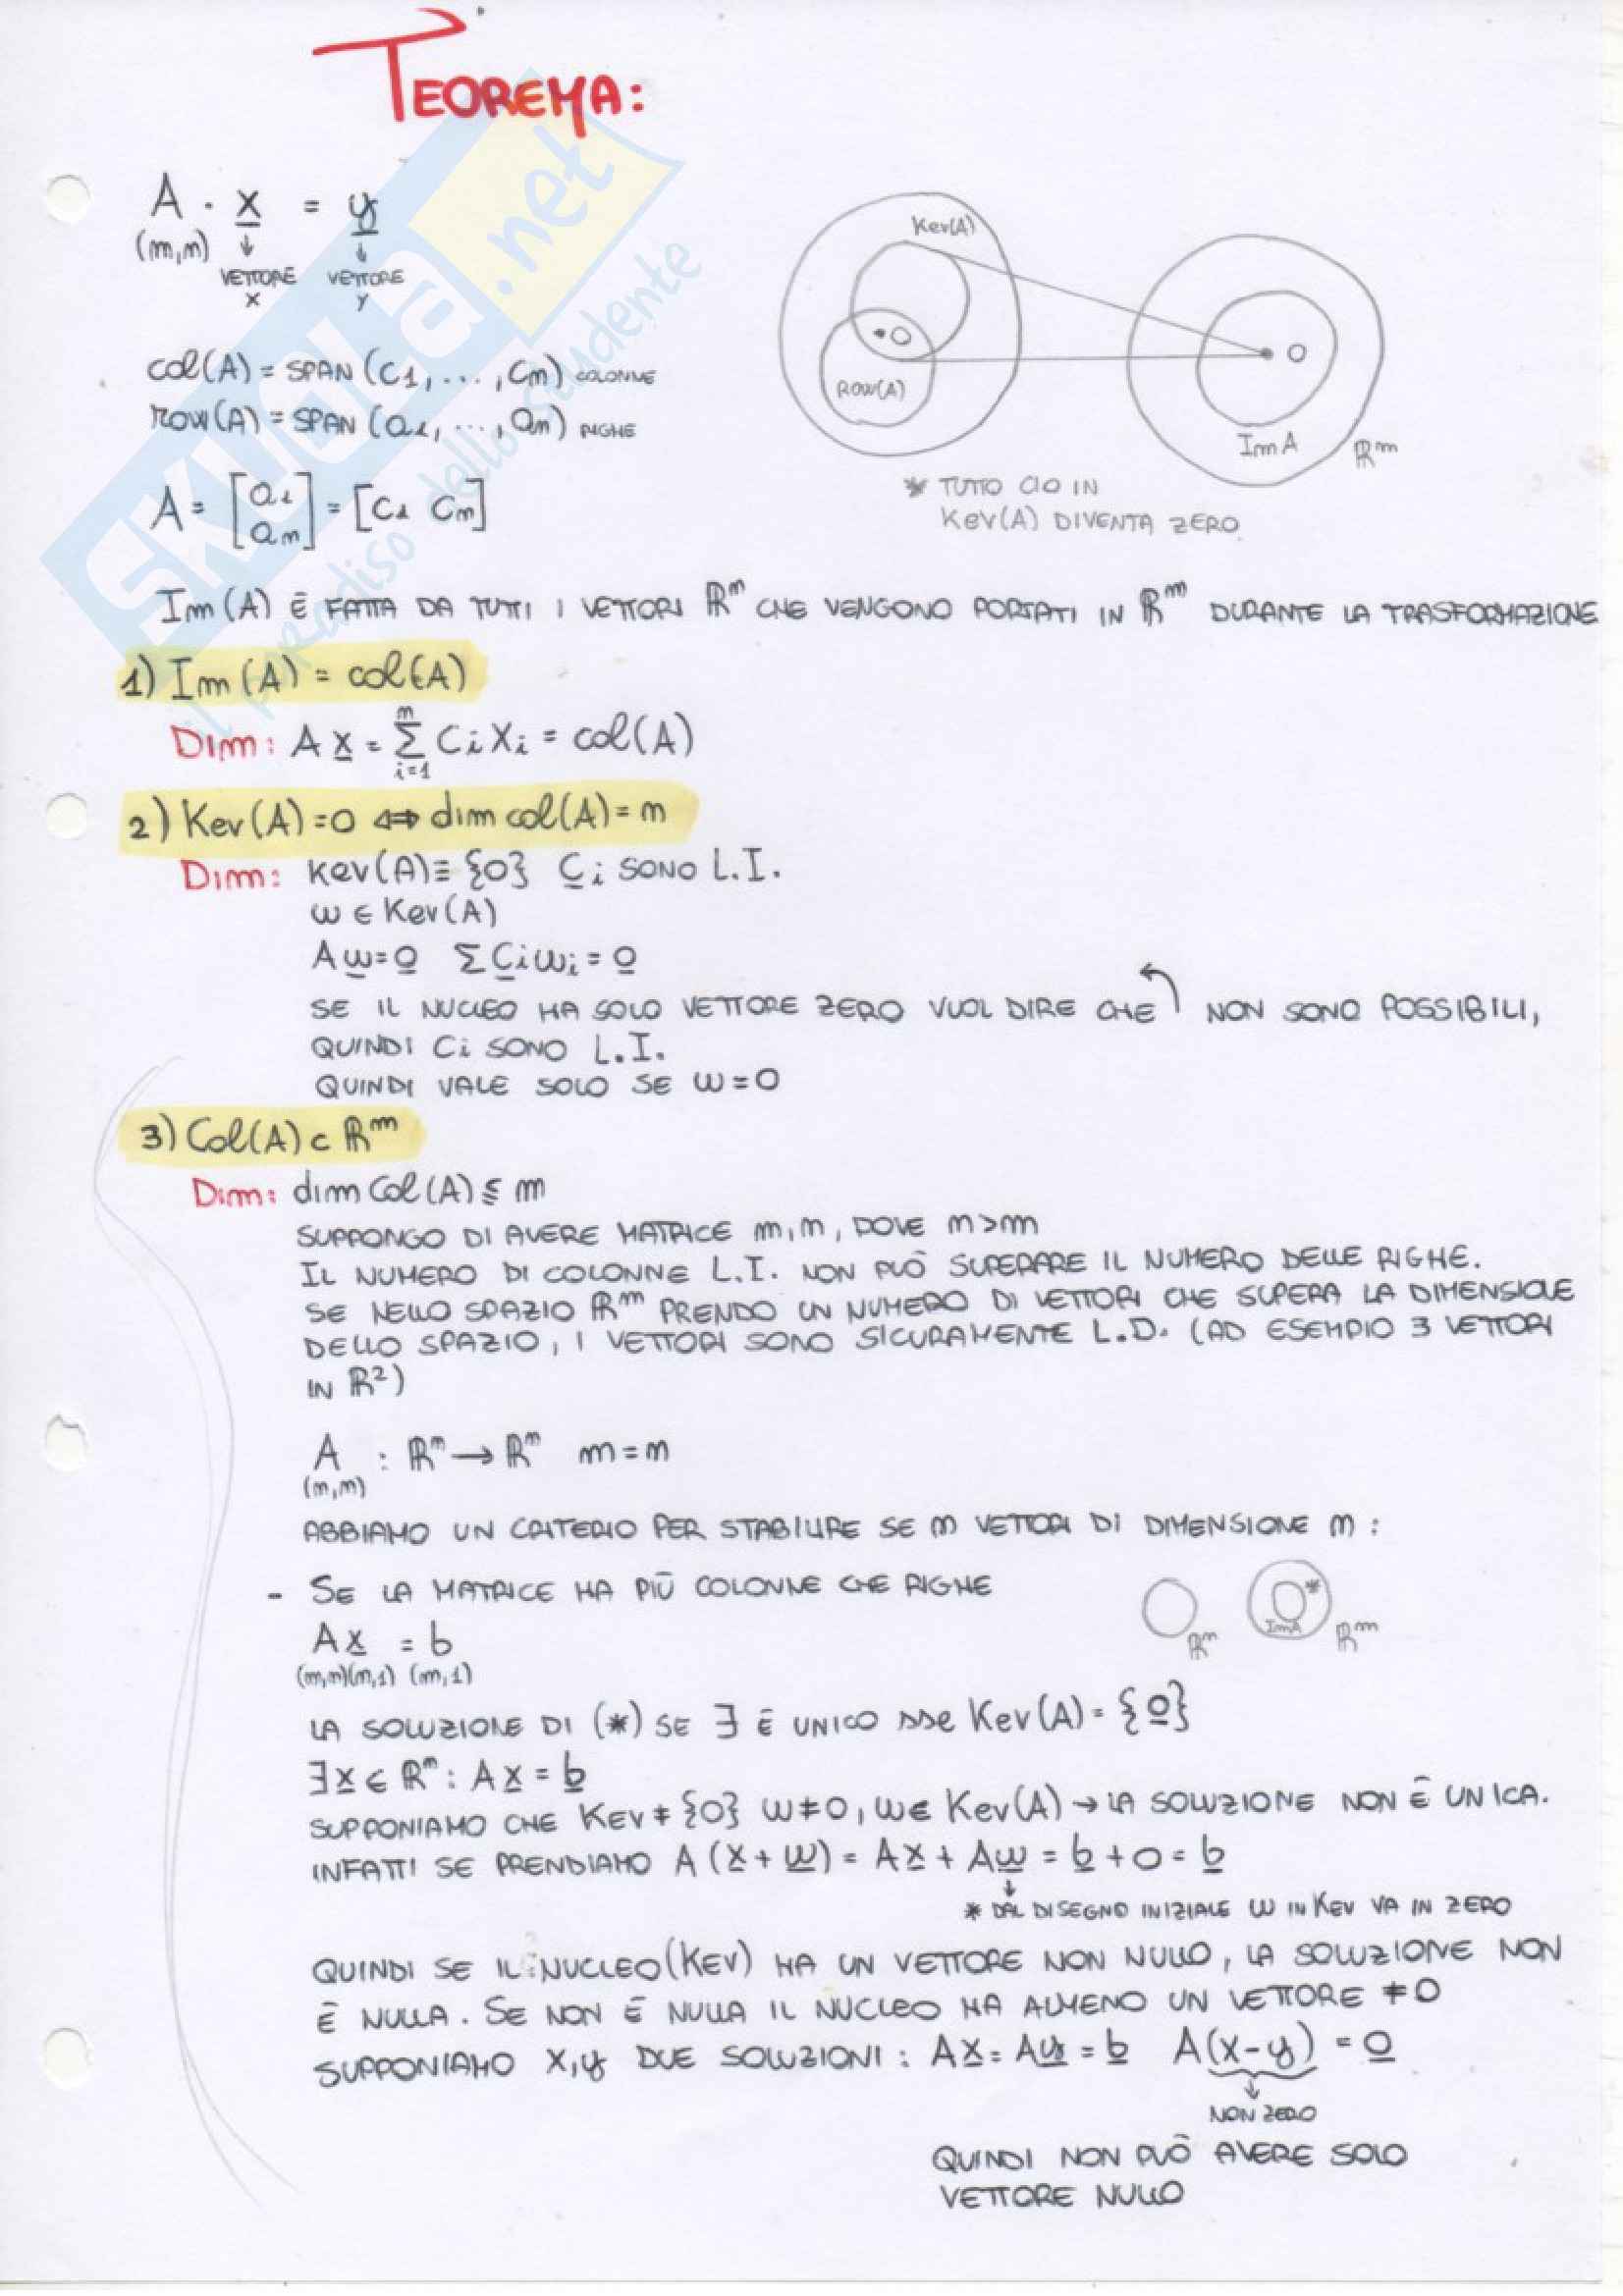 TEOREMA:
A · x = y
(m,n) ↓ ↓
VETTORE VETTORE
X Y
Ker(A)
ROW(A)
O
O
Im A
ℝᵐ
col(A) = SPAN (C1, ..., Cn) COLONNE
ROW(A) = SPAN (a1, ..., am) RIGHE
A = [a1 am] = [C1 Cn]
* TUTTO CIO IN
Ker(A) DIVENTA ZERO.
Im(A) È FATTA DA TUTTI I VETTORI ℝⁿ CHE VENGONO PORTATI IN ℝᵐ DURANTE LA TRASFORMAZIONE
1) Im(A) = col(A)
Dim: A x = Σ(i=1, n) Ci Xi = col(A)
2) Ker(A) = 0 ⇔ dim col(A) = n
Dim: Ker(A) ≡ {0} Ci SONO L.I.
w ∈ Ker(A)
A w = 0 Σ Ci wi = 0
SE IL NUCLEO HA SOLO VETTORE ZERO VUOL DIRE CHE ↰ NON SONO POSSIBILI,
QUINDI Ci SONO L.I.
QUINDI VALE SOLO SE W = 0
3) Col(A) ⊂ ℝᵐ
Dim: dim Col(A) ≤ m
SUPPONGO DI AVERE MATRICE m,n, DOVE n > m
IL NUMERO DI COLONNE L.I. NON PUÒ SUPERARE IL NUMERO DELLE RIGHE.
SE NELLO SPAZIO ℝᵐ PRENDO UN NUMERO DI VETTORI CHE SUPERA LA DIMENSIONE
DELLO SPAZIO, I VETTORI SONO SICURAMENTE L.D. (AD ESEMPIO 3 VETTORI
IN ℝ²)
A : ℝⁿ → ℝⁿ m = n
(n,n)
ABBIAMO UN CRITERIO PER STABILIRE SE n VETTORI DI DIMENSIONE n :
- SE LA MATRICE HA PIÙ COLONNE CHE RIGHE
ℝⁿ
ImA
*
ℝᵐ
A x = b
(m,n)(n,1) (m,1)
LA SOLUZIONE DI (*) SE ∃ È UNICO sse Ker(A) = {0}
∃ x ∈ ℝⁿ : A x = b
SUPPONIAMO CHE Ker ≠ {0} w ≠ 0, w ∈ Ker(A) → LA SOLUZIONE NON È UNICA.
INFATTI SE PRENDIAMO A (x + w) = A x + A w = b + 0 = b
↓
* DAL DISEGNO INIZIALE W IN Ker VA IN ZERO
QUINDI SE IL NUCLEO (KER) HA UN VETTORE NON NULLO, LA SOLUZIONE NON
È NULLA. SE NON È NULLA IL NUCLEO HA ALMENO UN VETTORE ≠ 0
SUPPONIAMO X, y DUE SOLUZIONI : A x = A y = b A(x - y) = 0
↓
NON ZERO
QUINDI NON PUÒ AVERE SOLO
VETTORE NULLO
SKUOLA.net
il paradiso dello studente